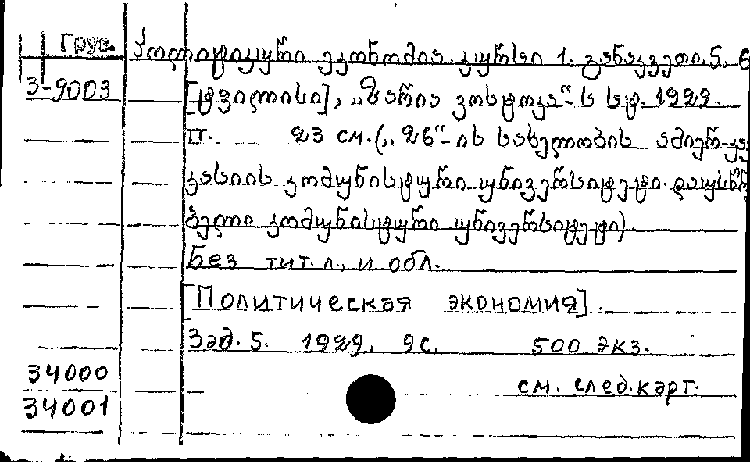 Груз. პოლიტიკური ეკონომია. კურსი 1. განაკვეთი 5, 6
3-9003 [ტფილისი], „ზარია ვოსტოკა“-ს სტ. 1929.
II. 23 см. („26“-ის სახელობის ამიერ-კავ
კასიის კომუნისტური უნივერსიტეტი. დაუსწრე
ბელი კომუნისტური უნივერსიტეტი).
Без тит. л. и обл.
[Политическая экономия].
Зад. 5. 1929, 9 с. 500 экз.
34000
34001
см. след. карт.